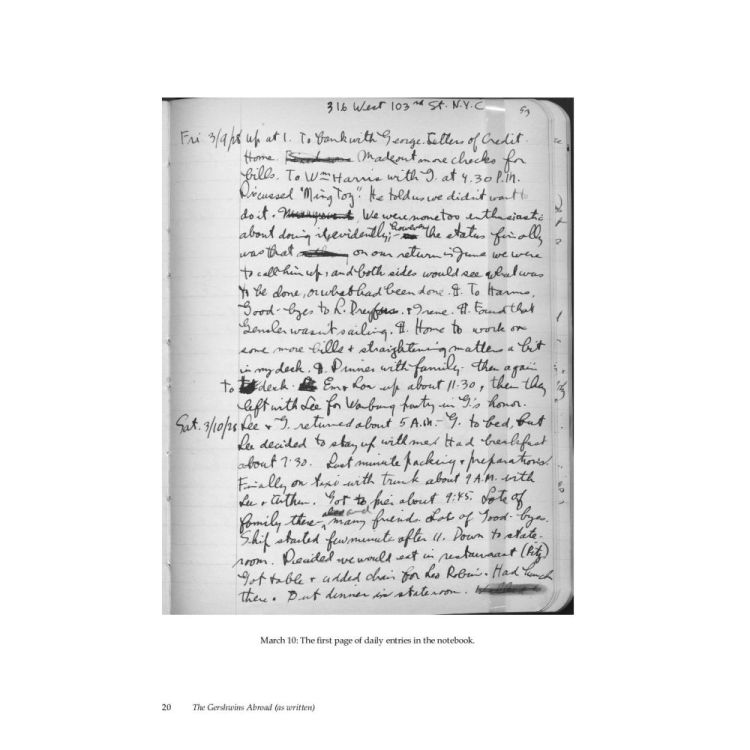 316 West 103rd St. N.Y.C.
Fri 3/9/28 up at 1. To bank with George. Letters of Credit.
Home. Made out more checks for
bills. To Wm Harris with G. at 4.30 P.M.
Discussed "Ming Toy". He told us we didn't want to
do it. We were none too enthusiastic
about doing it, evidently; however the status finally
was that on our return in June we were
to call him up, and both sides would see what was
to be done, or what had been done. ¶. To Harms.
Good-byes to L. Dreyfus. & Irene. ¶. Found that
Gensler wasn't sailing. ¶. Home to work on
some more bills & straightening matters a bit
in my desk. ¶. Dinner with family. then again
to desk. Em & Lou up about 11.30, then they
left with Lee for Warburg party in G's honor.
Sat. 3/10/28 Lee & G. returned about 5 A.M. – G. to bed, but
Lee decided to stay up with me. Had breakfast
about 7.30. Last minute packing & preparations.
Finally on taxi with trunk about 9 A.M. with
Lee & Arthur. Got to pier about 9:45. Lots of
family there, also and many friends. Lot of good-byes.
Ship started few minute after 11. Down to state-
room. Decided we would eat in restaurant (Ritz)
Got table & added chair for Leo Robin. Had lunch
there. But dinner in stateroom.
March 10: The first page of daily entries in the notebook.
20 The Gershwins Abroad (as written)